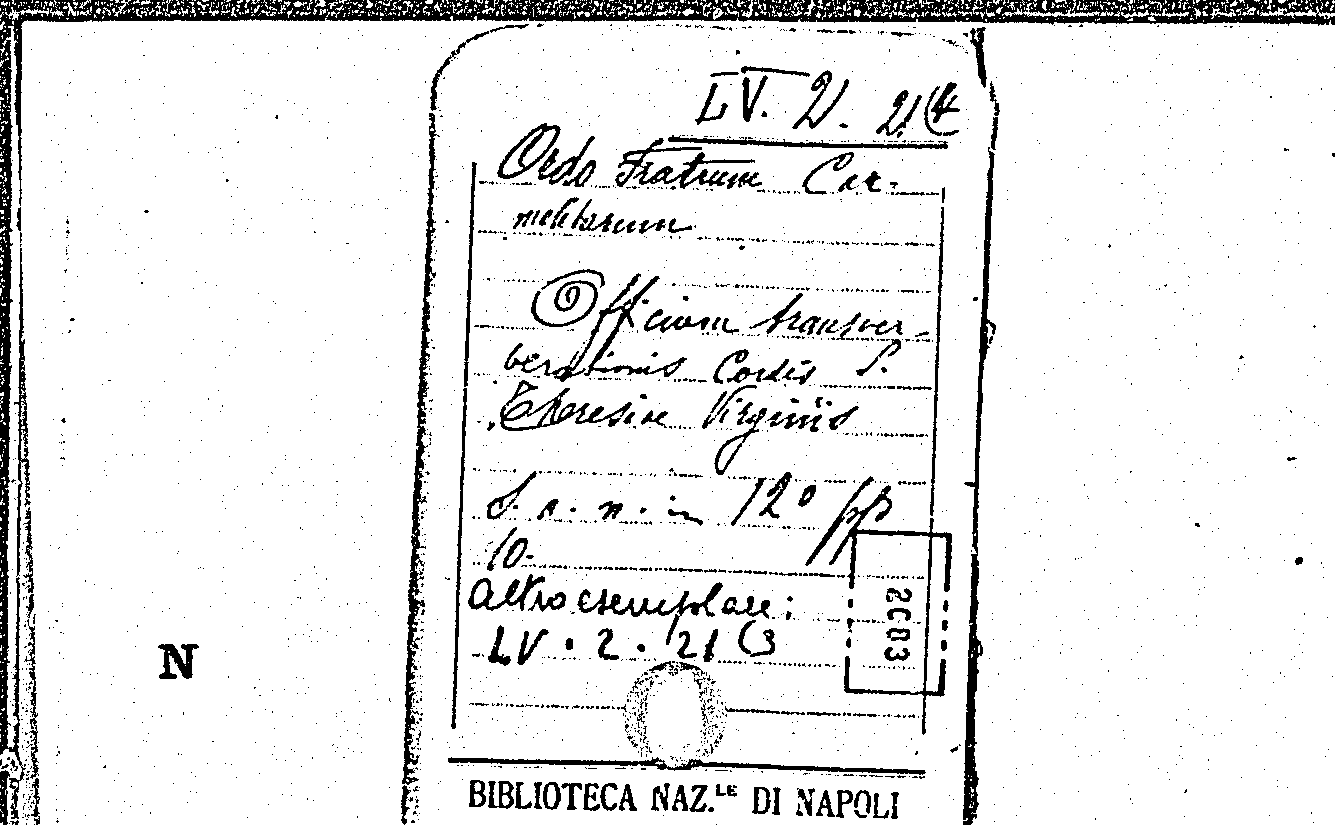 LV. 2. 21(4
Ordo Fratrum Car-
melitarum
Officium transver-
berationis Cordis S.
Theresiae Virginis
S. a. n. in 12° pp
10.
altro esemplare:
LV. 2. 21(3
2C83
N
BIBLIOTECA NAZ.LE DI NAPOLI